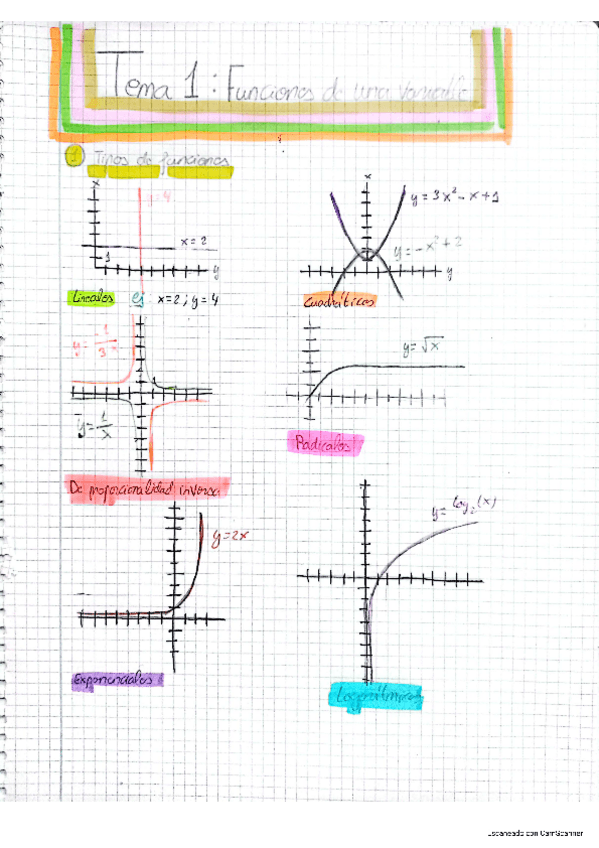 Tema 1: Funciones de una variable
1 Tipos de funciones
x
y=4
x=2
1
y
Lineales ej x=2; y=4
x
y=3x²-x+1
y=-x²+2
y
Cuadráticas
y=-1/3x
1
y=1/x
De proporcionalidad inversa
y=√x
Radicales
y=2x
Exponenciales
y=log₂(x)
Logarítmicas
Escaneado con CamScanner